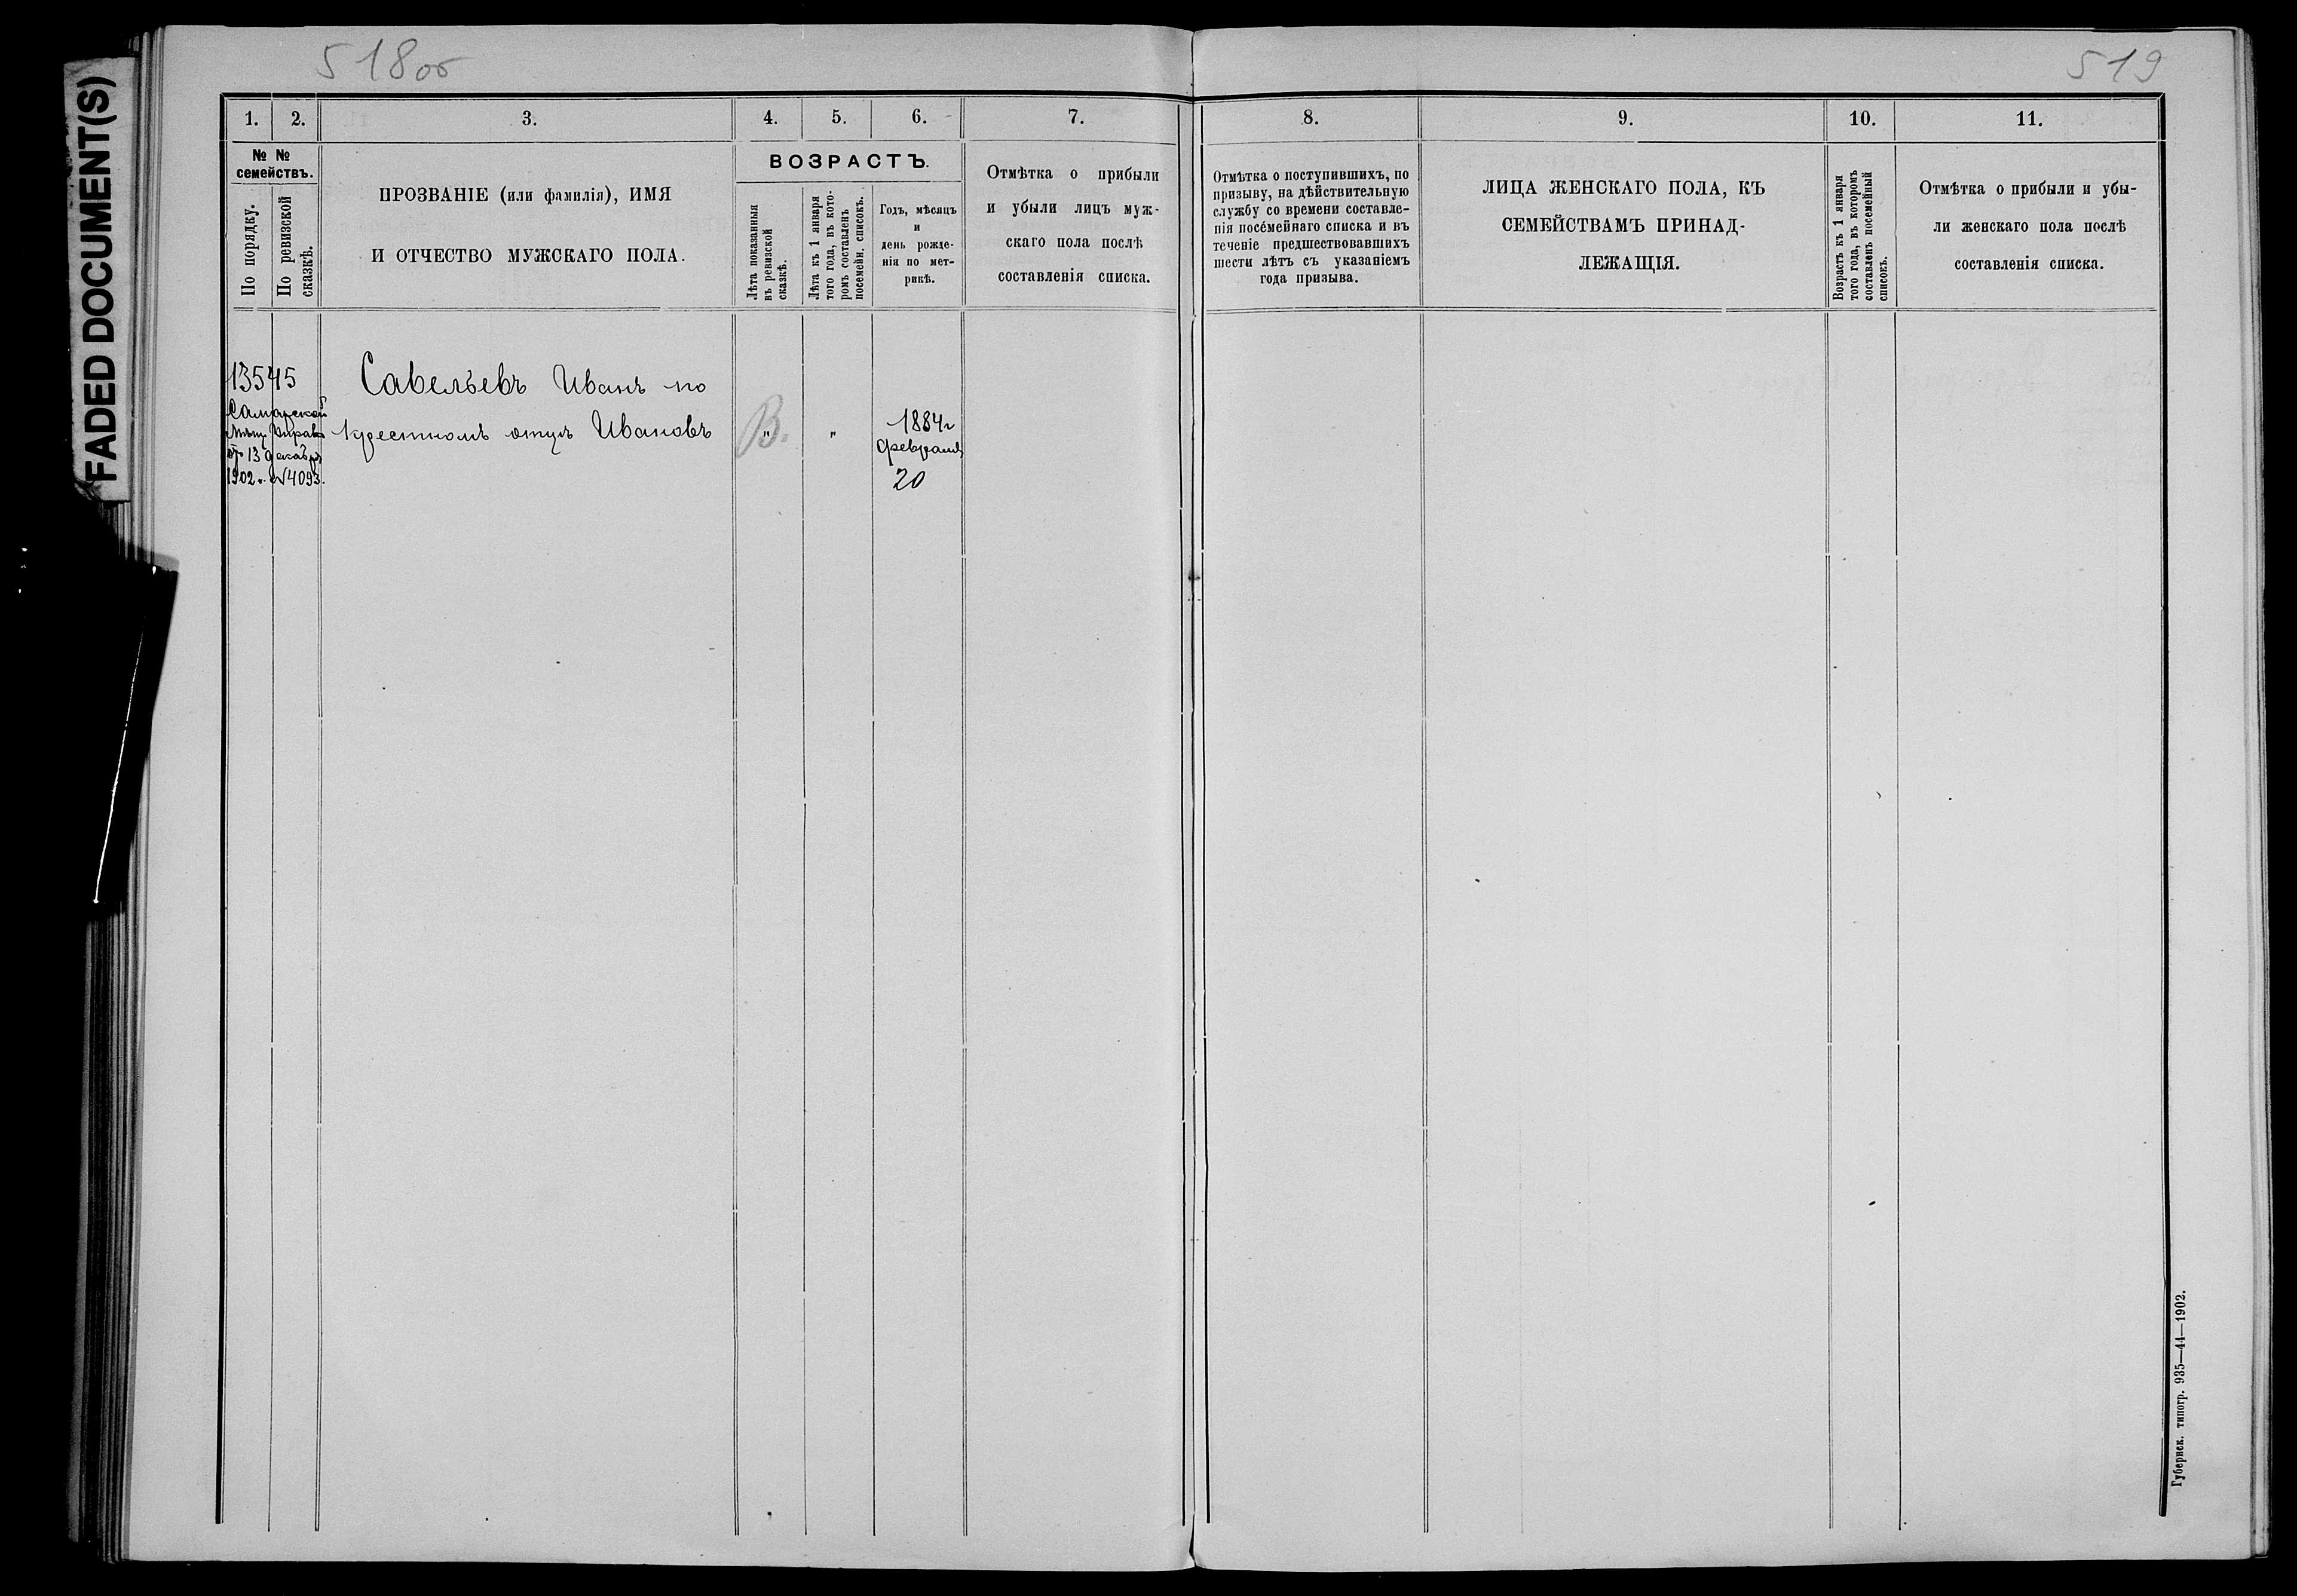 FADED DOCUMENT(S)
518 об
519
1.
2.
3.
4.
5.
6.
7.
8.
9.
10.
11.
№ №
семействъ.
По порядку.
По ревизской
сказкѣ.
ПРОЗВАНІЕ (или фамилія), ИМЯ
И ОТЧЕСТВО МУЖСКАГО ПОЛА.
ВОЗРАСТЪ.
Лѣта показанныя
въ ревизской
сказкѣ.
Лѣта къ 1 января
того года, въ кото-
ромъ составленъ
посемейн. списокъ.
Годъ, мѣсяцъ
и
день рожде-
нія по мет-
рикѣ.
Отмѣтка о прибыли
и убыли лицъ муж-
скаго пола послѣ
составленія списка.
Отмѣтка о поступившихъ, по
призыву, на дѣйствительную
службу со времени составле-
нія посемейнаго списка и въ
теченіе предшествовавшихъ
шести лѣтъ съ указаніемъ
года призыва.
ЛИЦА ЖЕНСКАГО ПОЛА, КЪ
СЕМЕЙСТВАМЪ ПРИНАД-
ЛЕЖАЩІЯ.
Возрастъ къ 1 января
того года, въ которомъ
составленъ посемейный
списокъ.
Отмѣтка о прибыли и убы-
ли женскаго пола послѣ
составленія списка.
13545
Самарской
Мѣщ. Управы
отъ 13 декабря
1902 г. №4093.
Савельевъ Иванъ по
крестномъ отцѣ Ивановъ
В.
"
"
1884г
Февраля
20
Губернск. типогр. 935—44—1902.